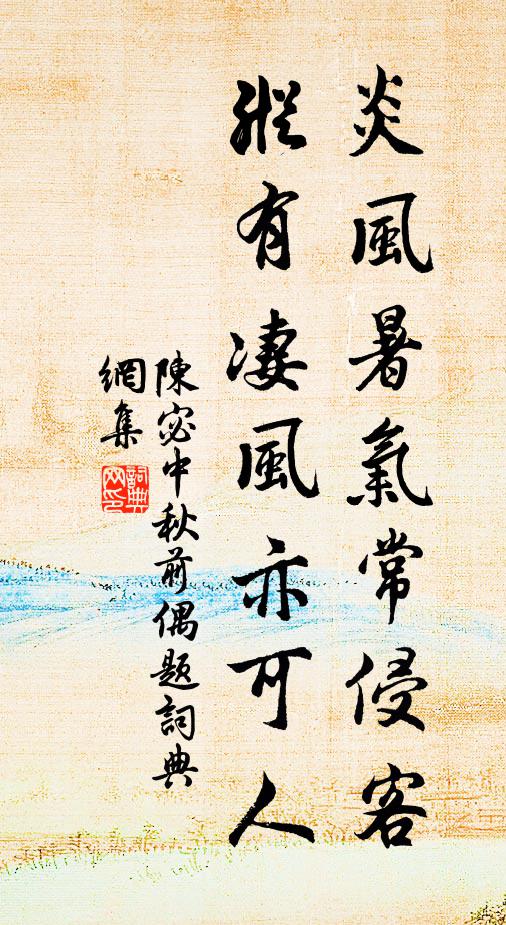 炎風暑氣常侵客
縱有凄風亦可人
陳宓中秋前偶題詞典
網集
詞典
网